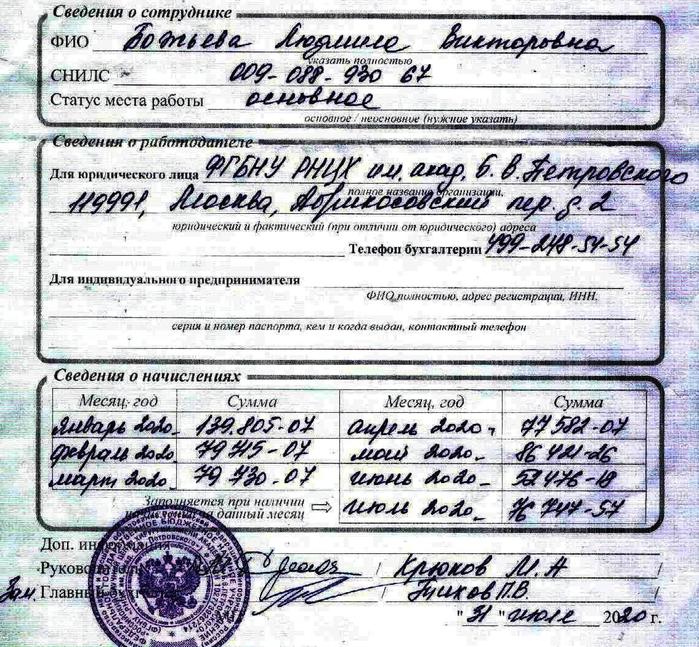 Сведения о сотруднике
ФИО Божьева Людмила Викторовна
указать полностью
СНИЛС 009-088-930 67
Статус места работы основное
основное / неосновное (нужное указать)
Сведения о работодателе
Для юридического лица ФГБНУ РНЦХ им. акад. Б.В. Петровского
полное название организации,
119991, Москва, Абрикосовский пер. д. 2
юридический и фактический (при отличии от юридического) адреса
Телефон бухгалтерии 499-248-54-54
Для индивидуального предпринимателя
ФИО полностью, адрес регистрации, ИНН,
серия и номер паспорта, кем и когда выдан, контактный телефон
Сведения о начислениях
Месяц, год Сумма Месяц, год Сумма
январь 2020 139.805-07 апрель 2020 77582-07
февраль 2020 79 715-07 май 2020 86 421-26
март 2020 79 730-07 июнь 2020 52476-18
Заполняется при наличии
на данный месяц ⇨ июль 2020 76 747-57
Доп.
Крюков М.А
Зам Главный
"31" июле 2020 г.